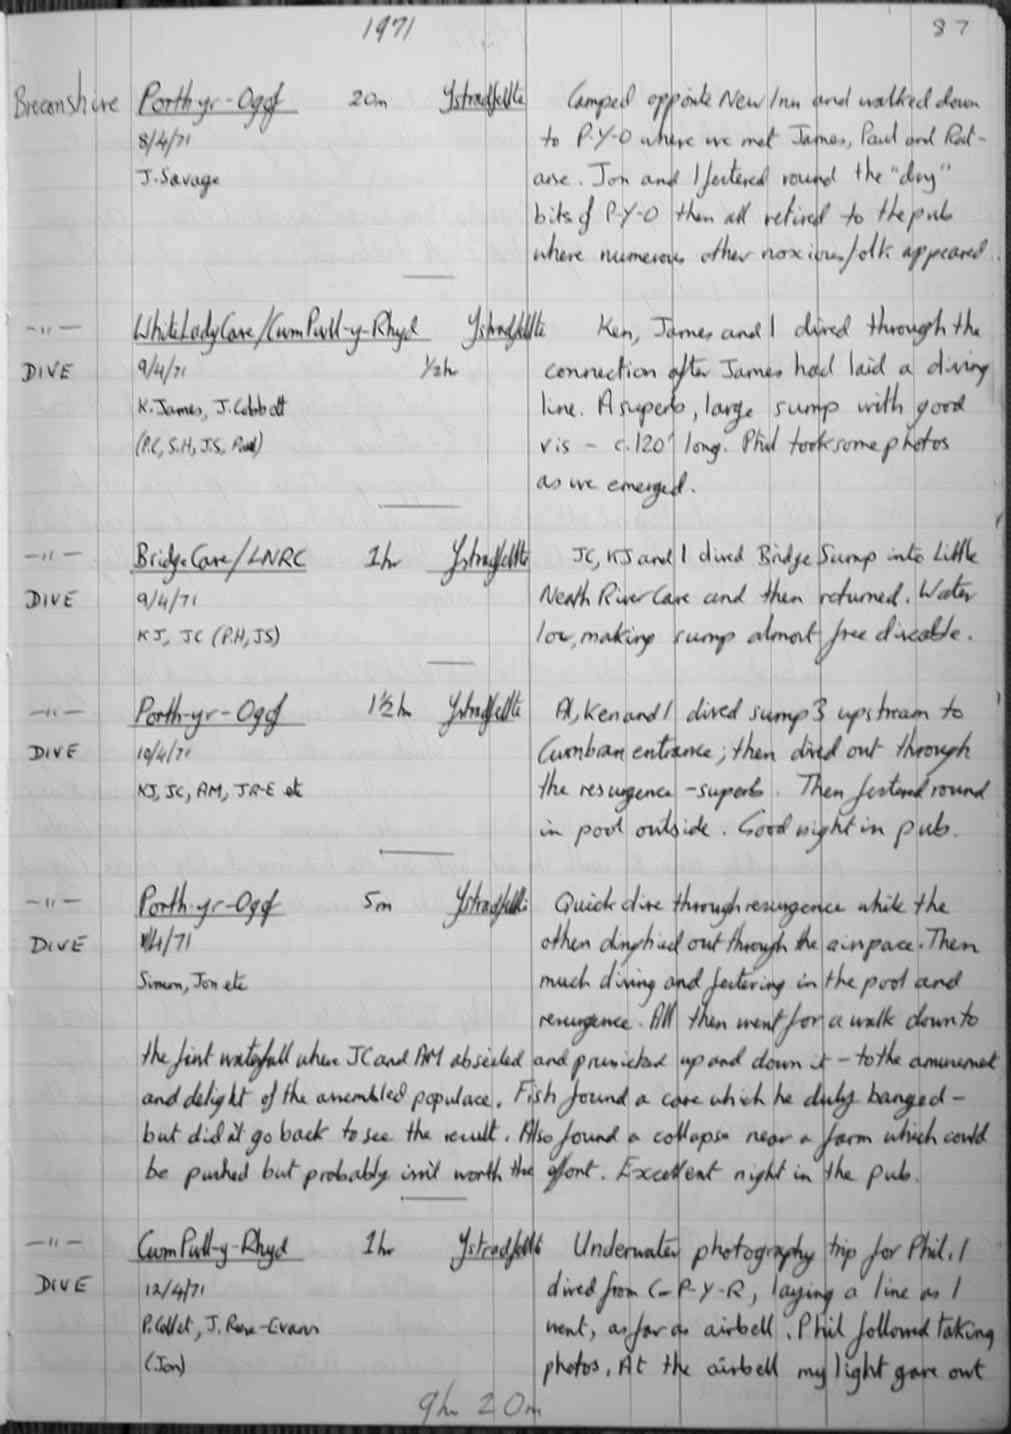 1971
87
Breconshire Porth-yr-Ogof 20m Ystradfellte Camped opposite New Inn and walked down
8/4/71 to P-Y-O where we met James, Paul and Rat-
J. Savage arse. Jon and I festered round the "dry"
bits of P-Y-O then all retired to the pub
where numerous other noxious folk appeared.
-"- White Lady Cave/Cwm Pwll-y-Rhyd Ystradfellte Ken, James and I dived through the
DIVE 9/4/71 ½hr connection after James had laid a diving
K. James, J. Cobbett line. A superb, large sump with good
(P.C, S.H, J.S, Paul) vis - c.120' long. Phil took some photos
as we emerged.
-"- Bridge Cave/LNRC 1hr Ystradfellte JC, KJ and I dived Bridge Sump into Little
DIVE 9/4/71 Neath River Cave and then returned. Water
KJ, JC (P.H, JS) low, making sump almost free diveable.
-"- Porth-yr-Ogof 1½hr Ystradfellte Al, Ken and I dived sump 3 upstream to
DIVE 10/4/71 Cwmbran entrance; then dived out through
KJ, JC, AM, JR-E etc the resurgence - superb. Then festered round
in pool outside. Good night in pub.
-"- Porth-yr-Ogof 5m Ystradfellte Quick dive through resurgence while the
DIVE 11/4/71 others dinghied out through the airspace. Then
Simon, Jon etc much diving and festering in the pool and
resurgence. All then went for a walk down to
the first waterfall where JC and AM abseiled and prusicked up and down it - to the amusement
and delight of the assembled populace. Fish found a cave which he duly banged -
but didn't go back to see the result. Also found a collapse near a farm which could
be pushed but probably isn't worth the effort. Excellent night in the pub.
-"- Cwm Pwll-y-Rhyd 1hr Ystradfellte Underwater photography trip for Phil. I
DIVE 12/4/71 dived from C-P-Y-R, laying a line as I
P. Collet, J. Rose-Evans went, as far as airbell. Phil followed taking
(Jon) photos. At the airbell my light gave out
9hr 20m